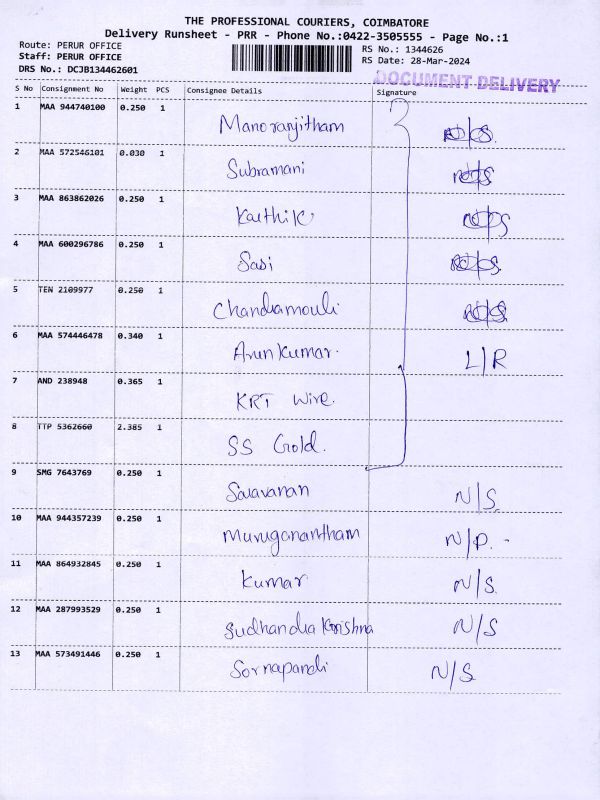 THE PROFESSIONAL COURIERS, COIMBATORE
Delivery Runsheet - PRR - Phone No.:0422-3505555 - Page No.:1
Route: PERUR OFFICE
Staff: PERUR OFFICE
DRS No.: DCJB134462601
RS No.: 1344626
RS Date: 28-Mar-2024
DOCUMENT DELIVERY
S No Consignment No Weight PCS Consignee Details Signature
1 MAA 944740100 0.250 1 Manoranjitham
2 MAA 572546101 0.030 1 Subramani
3 MAA 863862026 0.250 1 Karthik
4 MAA 600296786 0.250 1 Sasi
5 TEN 2109977 0.250 1 Chandramouli
6 MAA 574446478 0.340 1 Arun Kumar. L/R
7 AND 238948 0.365 1 KRT Wire.
8 TTP 5362660 2.385 1 SS Gold.
9 SMG 7643769 0.250 1 Saravanan N/S
10 MAA 944357239 0.250 1 Muruganantham N/P. -
11 MAA 864932845 0.250 1 Kumar N/S
12 MAA 287993529 0.250 1 Sudhandra Krishna N/S
13 MAA 573491446 0.250 1 Sornapandi N/S